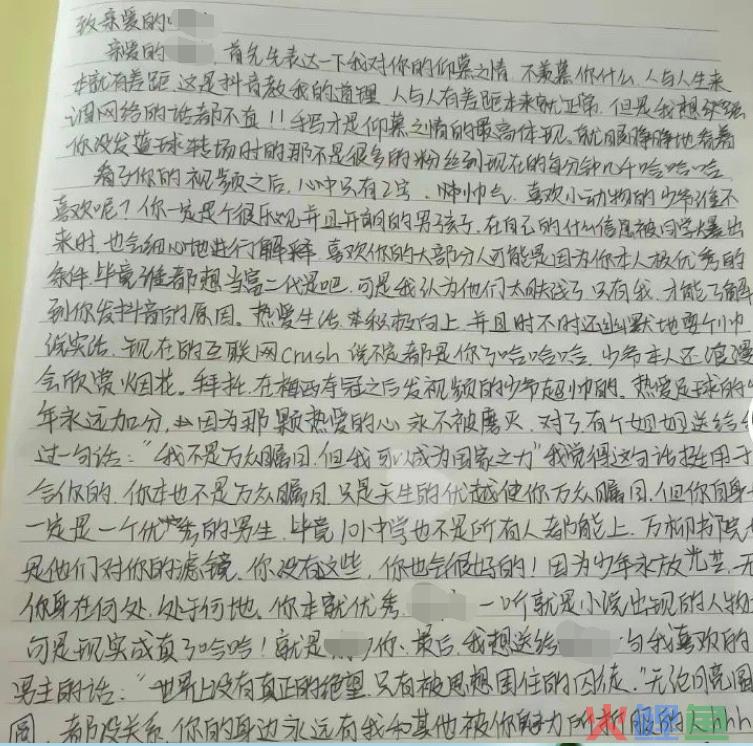 致亲爱的
亲爱的 ，首先先表达一下我对你的仰慕之情，不羡慕你什么，人与人生来
本就有差距，这是抖音教我的道理，人与人有差距本来就正常，但是我想强
调网络的话都不真！！才是仰慕之情的最高体现。就服静静地看着
你没发篮球转场时的那不是很多的粉丝到现在的每分钟几千哈哈哈
看了你的视频之后，心中只有2字，帅帅气，喜欢小动物的少年谁不
喜欢呢？你一定是个很乐观并且开朗的男孩子，在自己的什么信息被同学爆出
来时，也会细心地进行解释，喜欢你的大部分人可能是因为你本人极优秀的
条件，毕竟谁都想当富二代是吧，可是我认为他们太肤浅了，只有我，才能了解
到你发抖音的原因。热爱生活，积极向上，并且时不时还幽默地耍个帅
说实话，现在的互联网crush说不定都是你了哈哈哈，少年本人还浪漫
会欣赏烟花。拜托，在梅西夺冠之后发视频的少年超帅的。热爱足球的少
年永远加分，因为那颗热爱的心永不被磨灭，对了有个姐姐送给
过一句话：“我不是万众瞩目，但我可以成为国家之力”我觉得这句话挺用于
合你的，你本也不是万众瞩目，只是天生的优越使你万众瞩目，但你自身
一定是一个优秀的男生，毕竟101中学也不是所有人都能上，万柳书院
是他们对你的滤镜，你没有这些，你也会很好的！因为少年永放光芒，无
你身在何处，处于何地。你本就优秀， 一听就是小说出现的人物
可是现实成真了哈哈！就是 你、最后，我想送给 句我喜欢的
男主的话：“世界上没有真正的绝望，只有被思想困住的囚徒。”无论

都没关系，你的身边永远有我和其他被你魅力所折服的人hhh
火鲤鱼